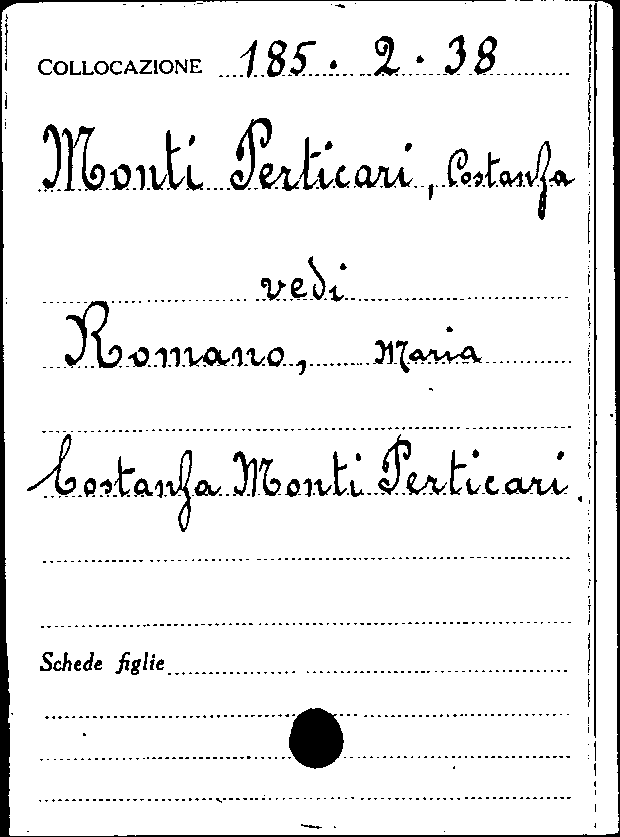 COLLOCAZIONE 185. 2. 38
Monti Perticari, Costanza
vedi
Romano, Maria
Costanza Monti Perticari.
Schede figlie